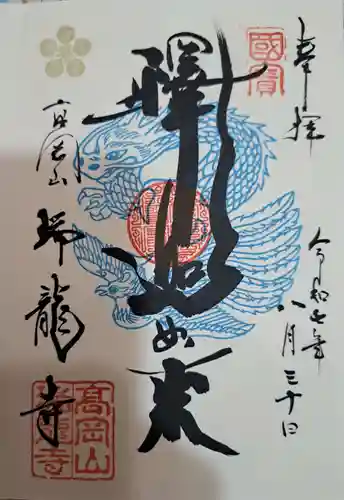 奉拝
國寳
令和七年
八月三十日
釋迦如来
高岡山
瑞龍寺
高岡山
瑞龍寺